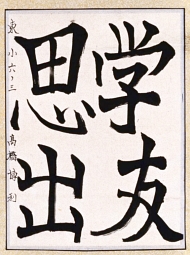 学友
思出
東小六ノ三 高橋博利